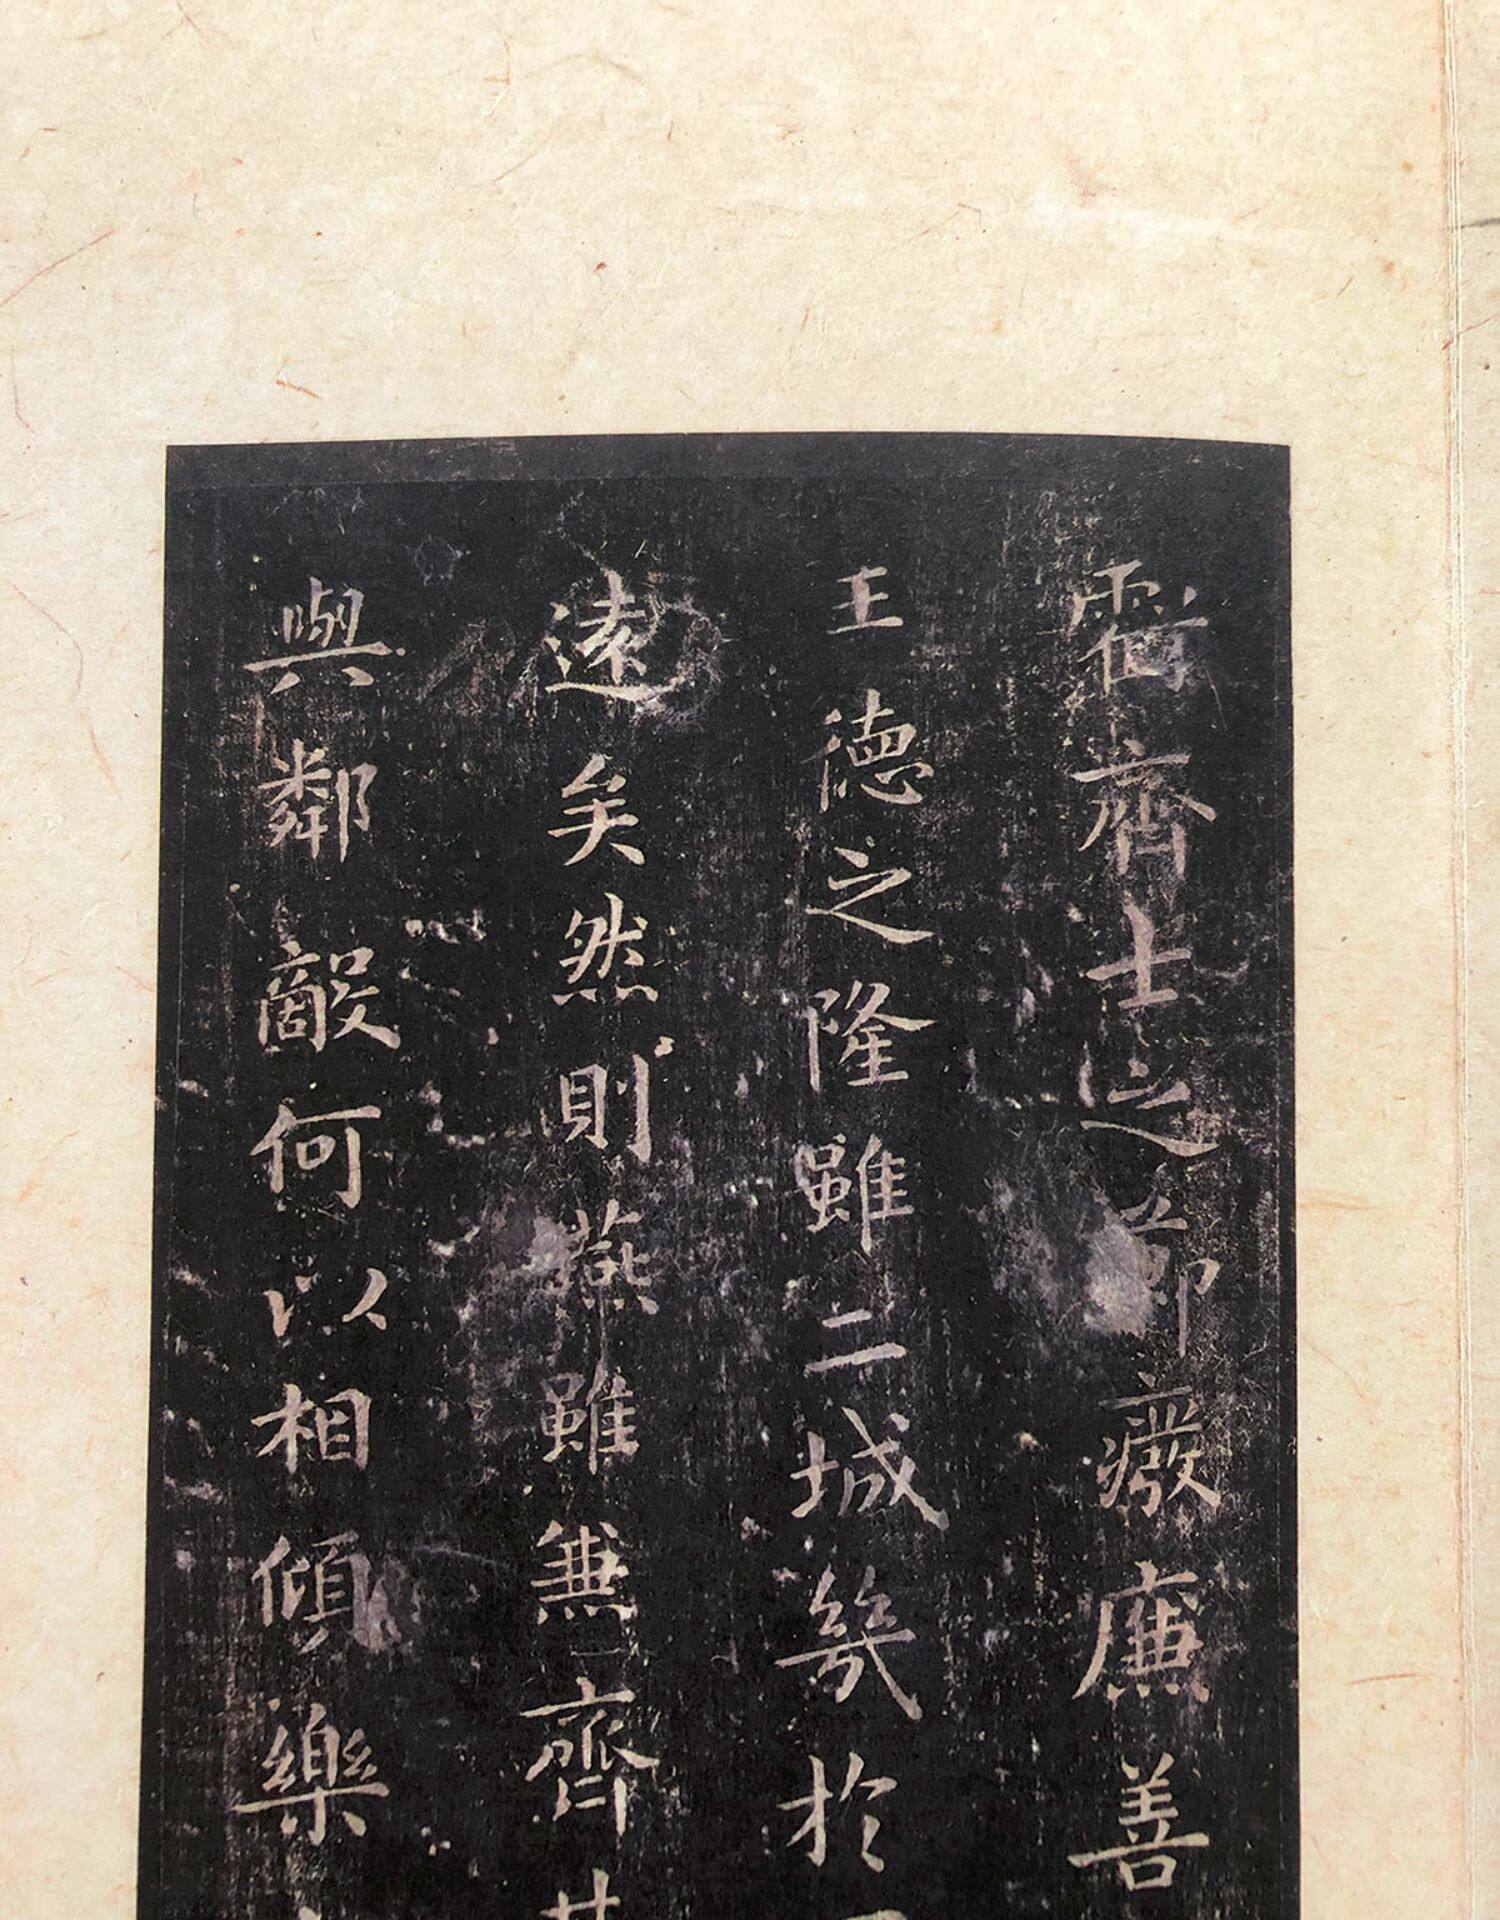 霸齊士之節廢廉善
王德之隆雖二城幾於
遠矣然則燕雖兼齊其
與鄰敵何以相傾樂